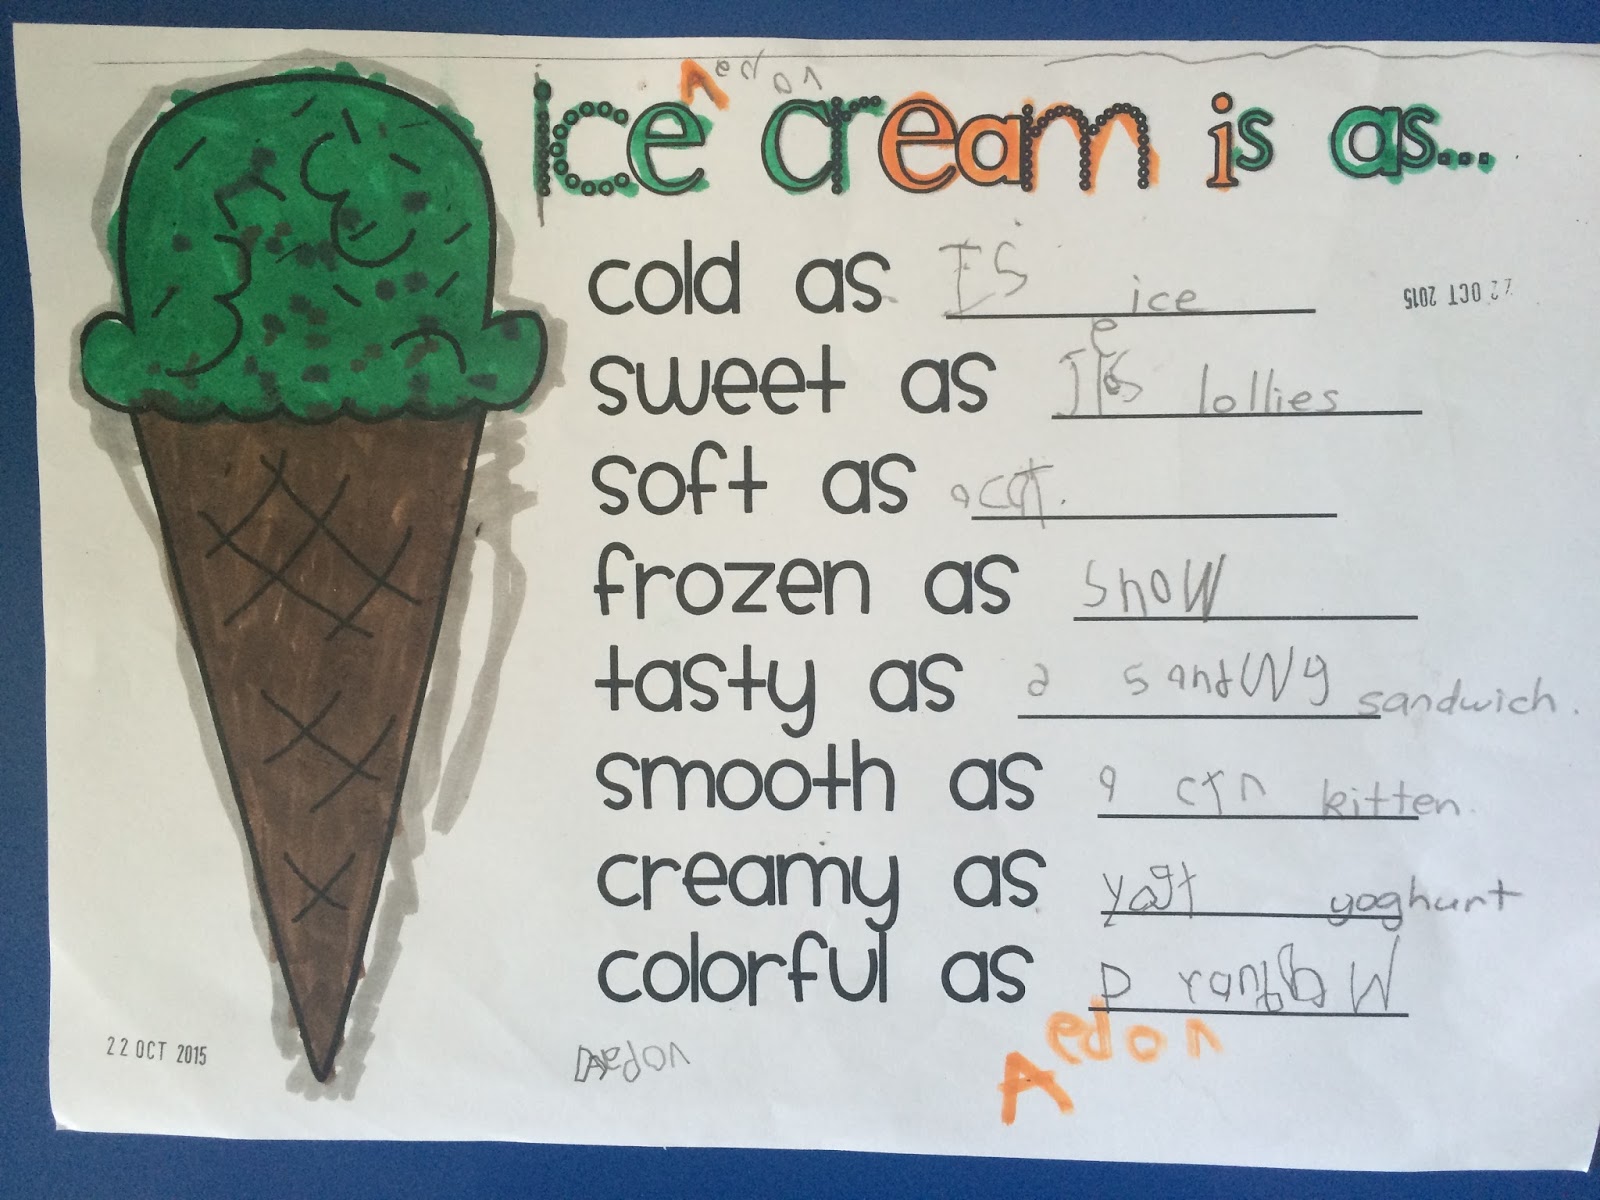 Aedon
ice cream is as...
cold as IS ice
22 OCT 2015
sweet as lollies
soft as a cat.
frozen as snow
tasty as a sandWg sandwich.
smooth as a ctn kitten.
creamy as yogt yoghurt
colorful as a ranbow
22 OCT 2015
Aedon
Aedon